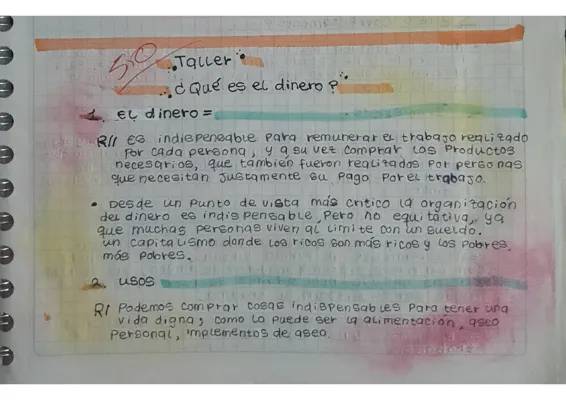 5.0
Taller
¿Qué es el dinero?
1. El dinero =
R// es indispensable para remunerar el trabajo realizado
por cada persona, y a su vez comprar los productos
necesarios, que tambien fueron realizados por personas
que necesitan justamente su pago por el trabajo.
• Desde un punto de vista más critico la organización
del dinero es indispensable, pero no equitativa, ya
que muchas personas viven al limite con un sueldo.
un capitalismo donde los ricos son más ricos y los pobres
más pobres.
2. usos
R/ Podemos comprar cosas indispensables para tener una
vida digna, como lo puede ser la alimentación, aseo
personal, implementos de aseo.